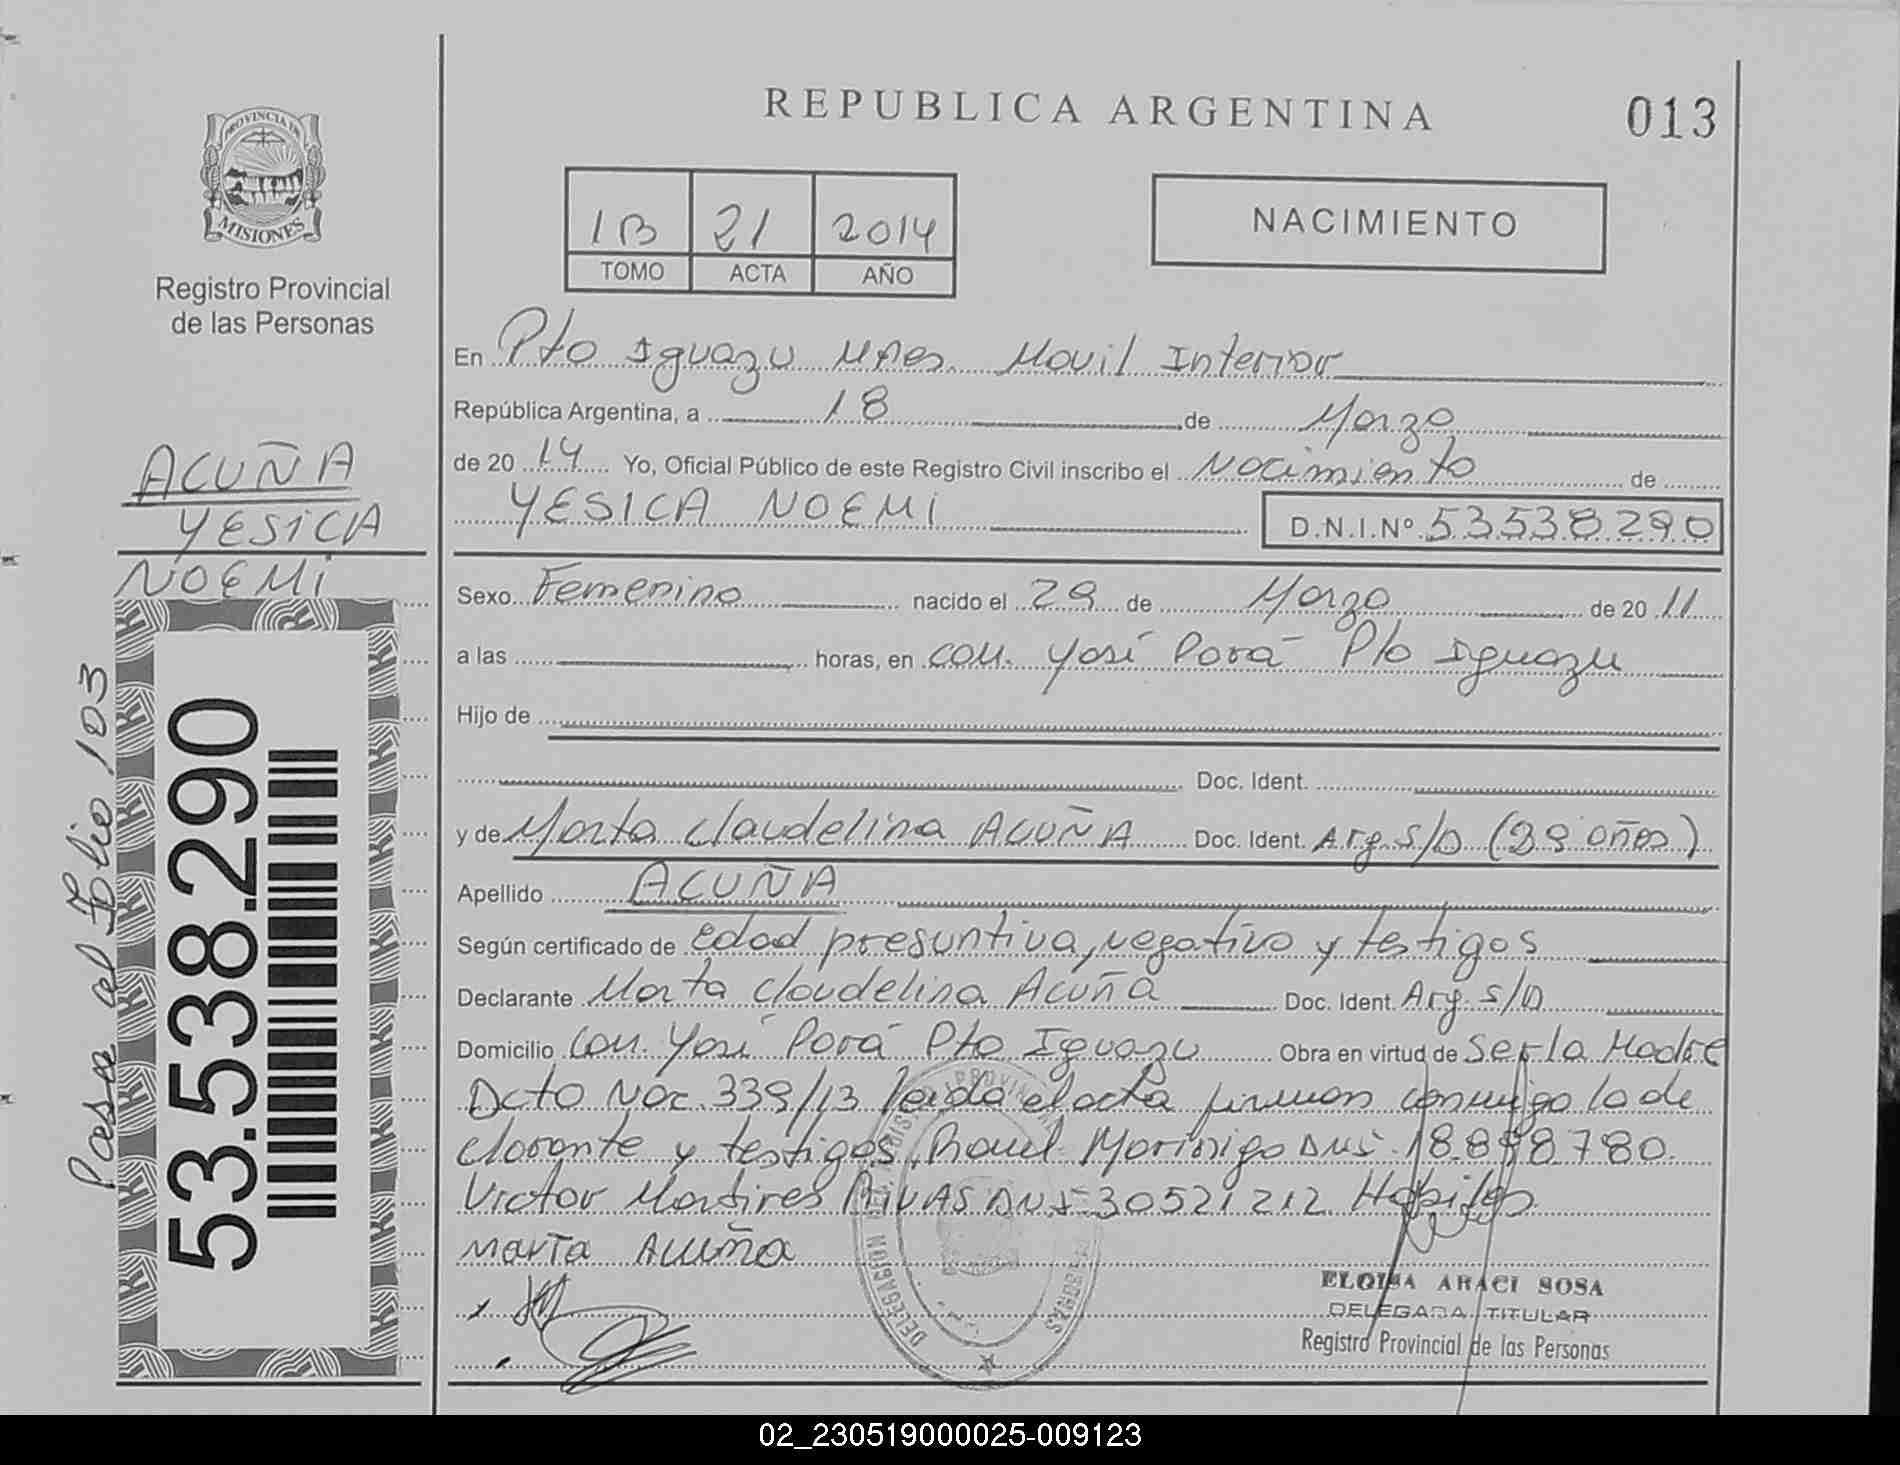 REPUBLICA ARGENTINA
013
PROVINCIA DE
MISIONES
Registro Provincial
de las Personas
1B 21 2014
TOMO ACTA AÑO
NACIMIENTO
En Pto Iguazu Mnes. Movil Interior
República Argentina, a 18 de Marzo
de 20 14 Yo, Oficial Público de este Registro Civil inscribo el Nacimiento de
YESICA NOEMI D.N.I.Nº 53538290
ACUÑA
YESICA
NOEMI
Sexo Femenino nacido el 29 de Marzo de 20 11
a las horas, en com. Yasi Pora Pto Iguazu
Hijo de
Doc. Ident.
y de Marta Claudelina ACUÑA Doc. Ident. Arg. s/D (29 años)
Apellido ACUÑA
Según certificado de edad presuntiva, negativo y testigos
Declarante Marta Claudelina Acuña Doc. Ident. Arg. s/D
Domicilio com. Yasi Pora Pto Iguazu Obra en virtud de Ser la Madre
Dcto Nac. 339/13 leida el acta firman conmigo la de
clarante y testigos. Raul Morinigo DNI 18.898780.
Victor Martires RIVAS DNI 30521212
Marta Acuña
ELOISA ARACI SOSA
DELEGADA TITULAR
Registro Provincial de las Personas
Pasa al Folio 103
53.538.290
02_230519000025-009123